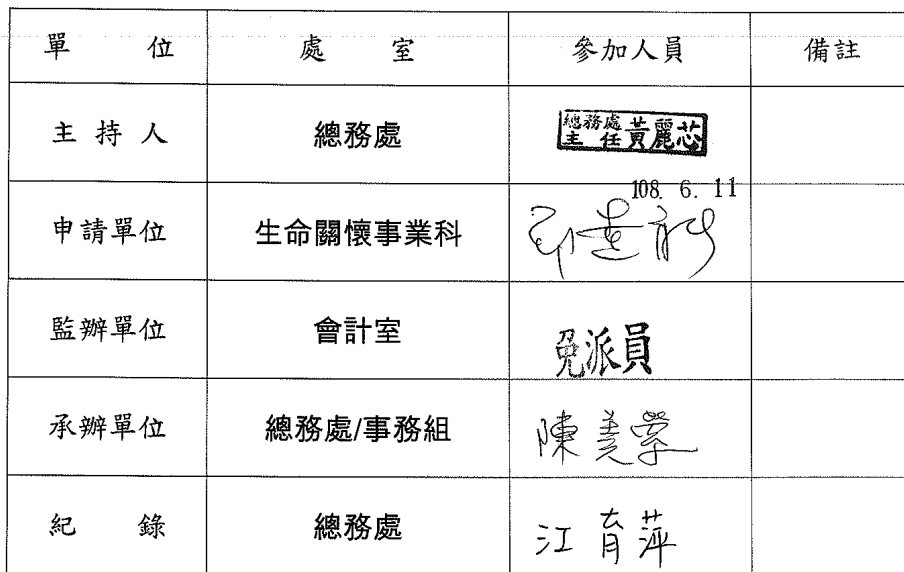 單 位 處 室 參加人員 備註
主持人 總務處 總務處主任黃麗芯
108. 6. 11
申請單位 生命關懷事業科
監辦單位 會計室 免派員
承辦單位 總務處/事務組 陳美
紀 錄 總務處 江育萍